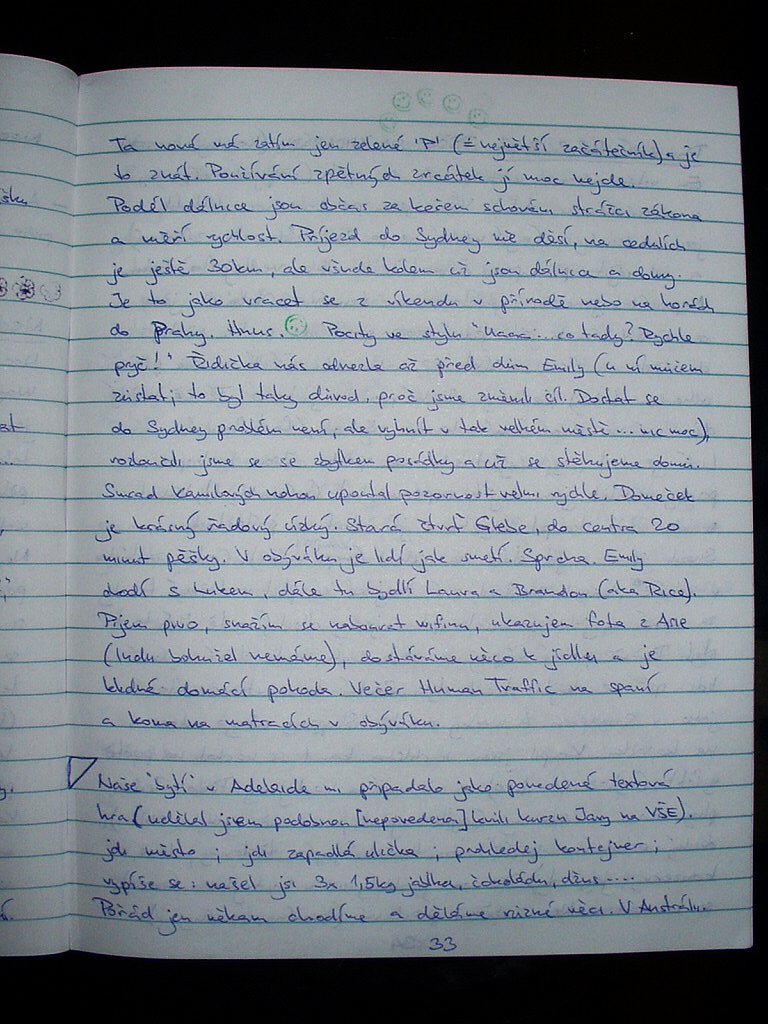 Ta nová má zatím jen zelené 'P' (= největší začátečník) a je
to znát. Používání zpětných zrcátek jí moc nejde.
Podél dálnice jsou občas za keřem schováni strážci zákona
a měří rychlost. Příjezd do Sydney mě děsí, na cedulích
je ještě 30km, ale všude kolem už jsou dálnice a domy.
Je to jako vracet se z víkendu v přírodě nebo na horách
do Prahy. Hnus. Pocity ve stylu "Uaaa... co tady? Rychle
pryč!" Řidička nás odvezla až před dům Emily (u ní můžem
zůstat; to byl taky důvod, proč jsme změnili cíl. Dostat se
do Sydney problém není, ale vyhnít v tak velkém městě ... nic moc),
rozloučili jsme se se zbytkem posádky a už se stěhujeme domů.
Smrad Kamilových nohou upoutal pozornost velmi rychle. Domeček
je krásný řadový úzký. Stará čtvrť Glebe, do centra 20
minut pěšky. V obýváku je lidí jak smetí. Sprcha. Emily
chodí s Lukem, dále tu bydlí Laura a Brandon (aka Rice).
Pijem pivo, snažím se nabourat wifinu, ukazujem fota z Asie
(Indii bohužel nemáme), dostáváme něco k jídlu a je
klidná domácí pohoda. Večer Human Traffic na spaní
a koma na matracích v obýváku.
Naše 'bytí' v Adelaide mi připadalo jako povedená textová
hra (udělal jsem podobnou [nepovedenou] kvůli kurzu Javy na VŠE).
jdi město ; jdi zapadlá ulička ; prohledej kontejner ;
vypíše se: našel jsi 3x 1,5kg jablka, čokoládu, džus ....
Pořád jen někam chodíme a děláme různé věci. V Austrálii
33
šku